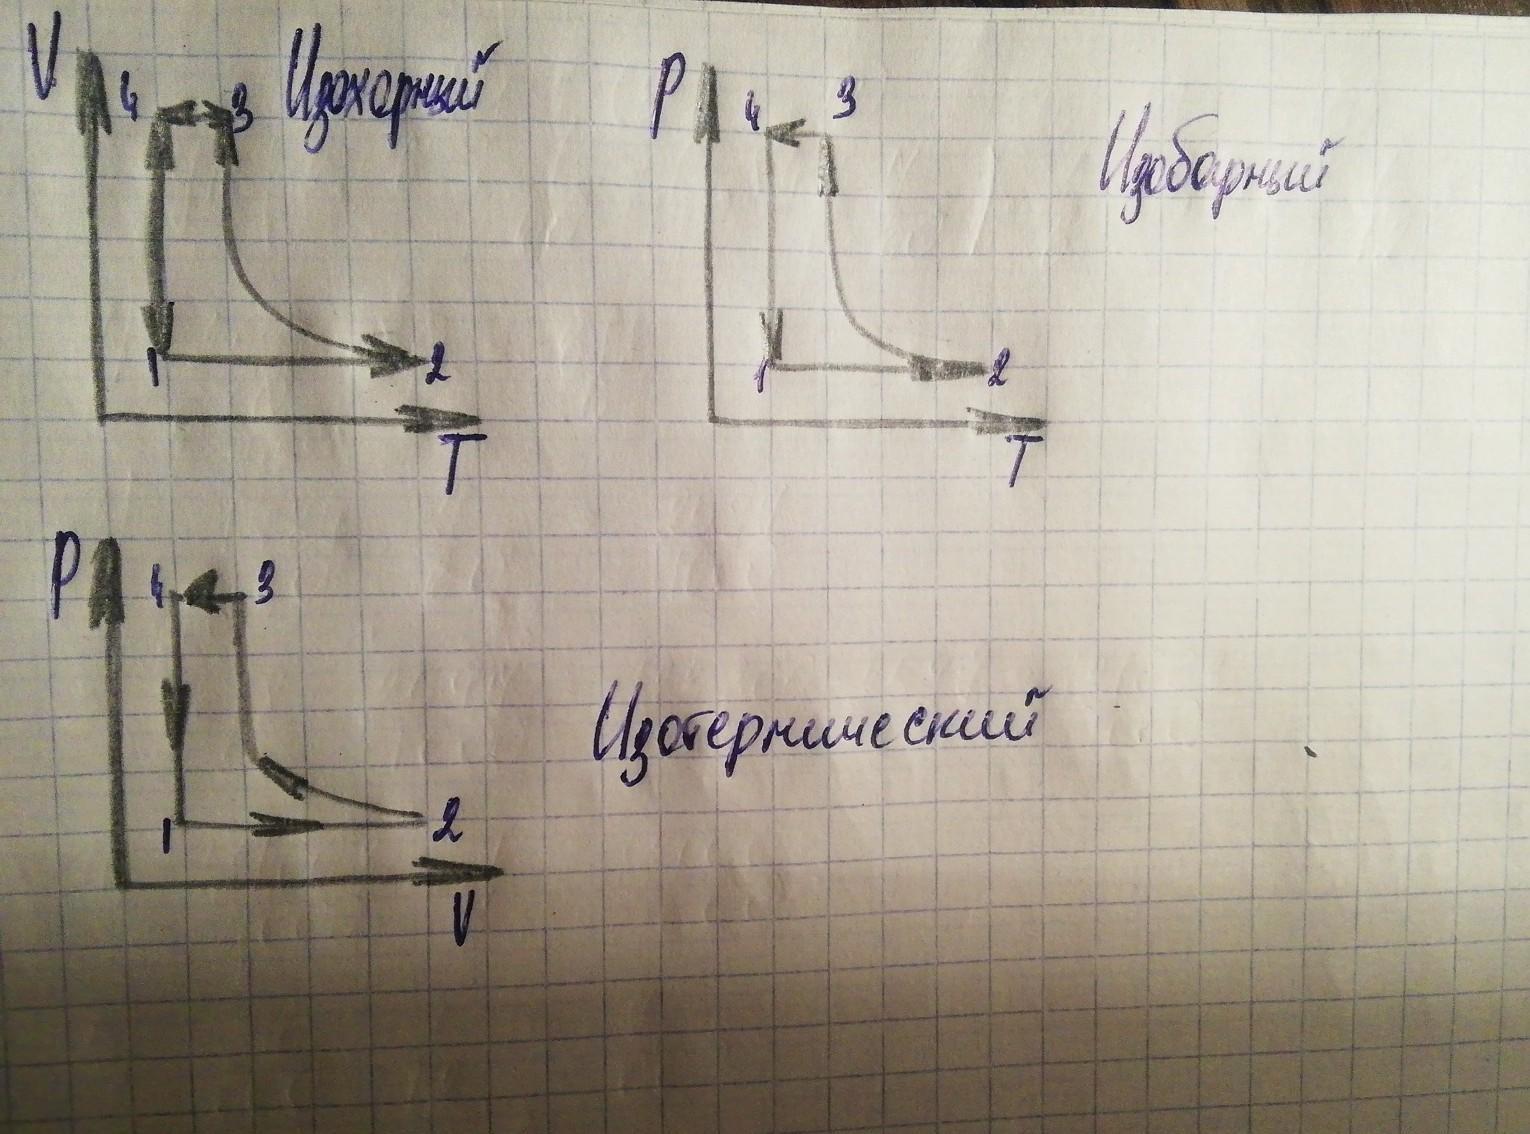 V 4 3 Изохорный
1 2
T
P 4 3 Изобарный
1 2
T
P 4 3
1 2
V
Изотермический